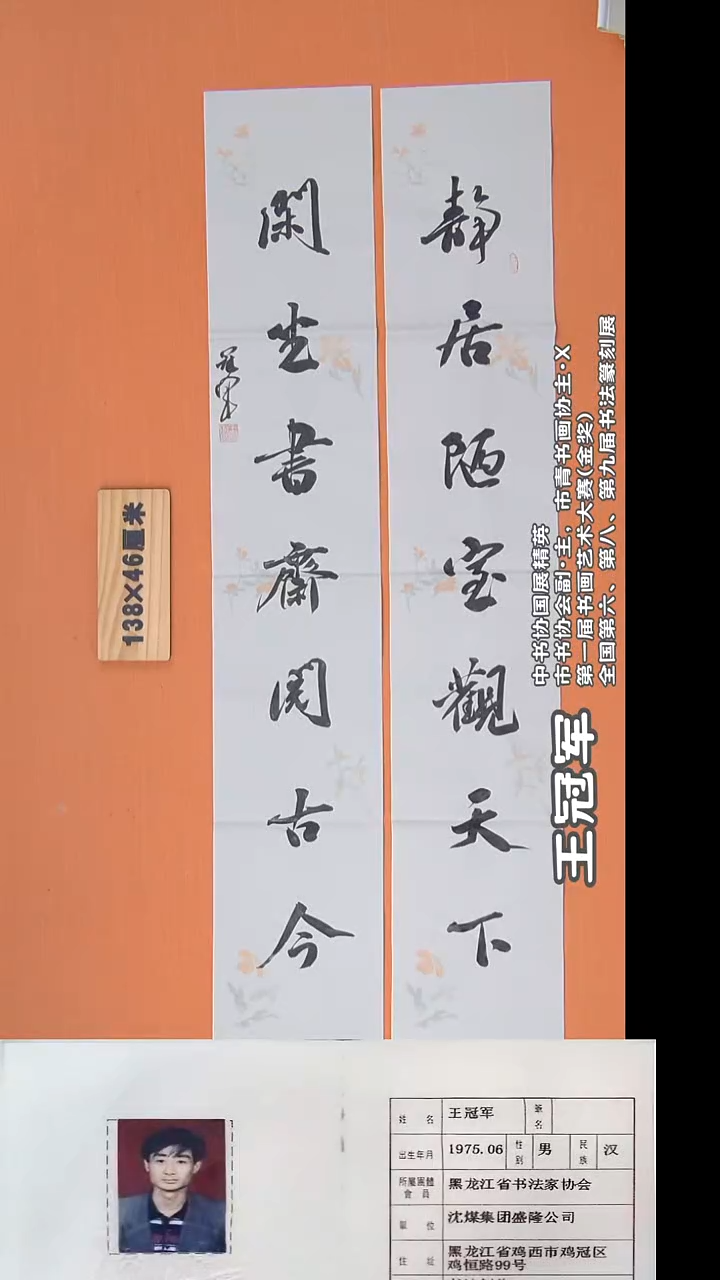 静居陋室觀天下
閑坐書齋閱古今
冠軍
138×46厘米
中书协国展精英
市书协会副·主，市青书画协主·X
第一届书画艺术大赛(金奖)
全国第六、第八、第九届书法篆刻展
王冠军
姓名 王冠军 筆名
出生年月 1975.06 性别 男 民族 汉
所屬團體會員 黑龙江省书法家协会
單位 沈煤集团盛隆公司
住址 黑龙江省鸡西市鸡冠区鸡恒路99号